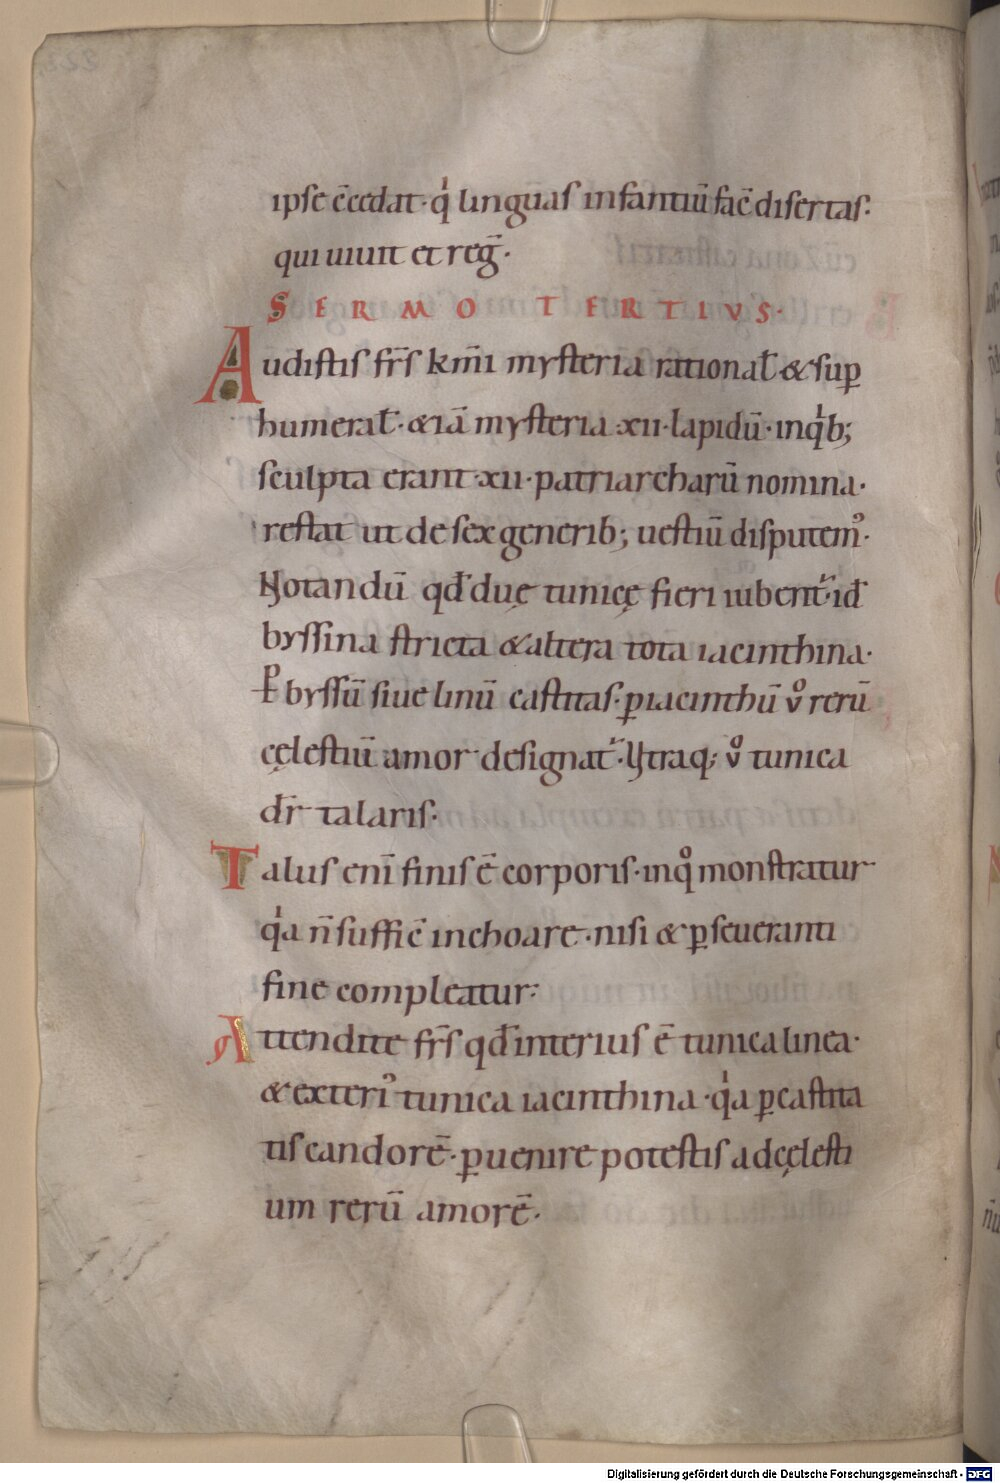 ipse c̄cedat· qͥ linguas infantiū fac̄ disertas·
qui uiuit et reḡ·
SERMO TERTIVS·
Audistis fr̄s km̄i mysteria rational̄ & sup̲
humeral̄· & iā mysteria ·xii· lapidū· inqͥb;
sculpta erant ·xii· patriarcharū nomina·
restat ut de sex generib; uestiū disputem᷒·
Notandū qd̄ duę tunicę fieri iubent᷑· id̄
byssina stricta & altera tota iacinthina·
P̲ byssū siue linū castitas· p̲ iacinthū ỏ rerū
cęlestiū amor designat᷑· Utraq; uͦ tunica
dr̄ talaris·
Talus eni̅ finis ē corporis· in qͦ monstratur
qͥa n̄ suffic̄ inchoare· nisi & p̲seueranti
fine compleatur·
Attendite fr̄s qd̄ interius ē tunica linea·
& exteri᷒ tunica iacinthina· qͥa p̲ castita
tis candorē· p̲uenire potestis ad cęlesti
um rerū amorē·
Digitalisierung gefördert durch die Deutsche Forschungsgemeinschaft - DFG